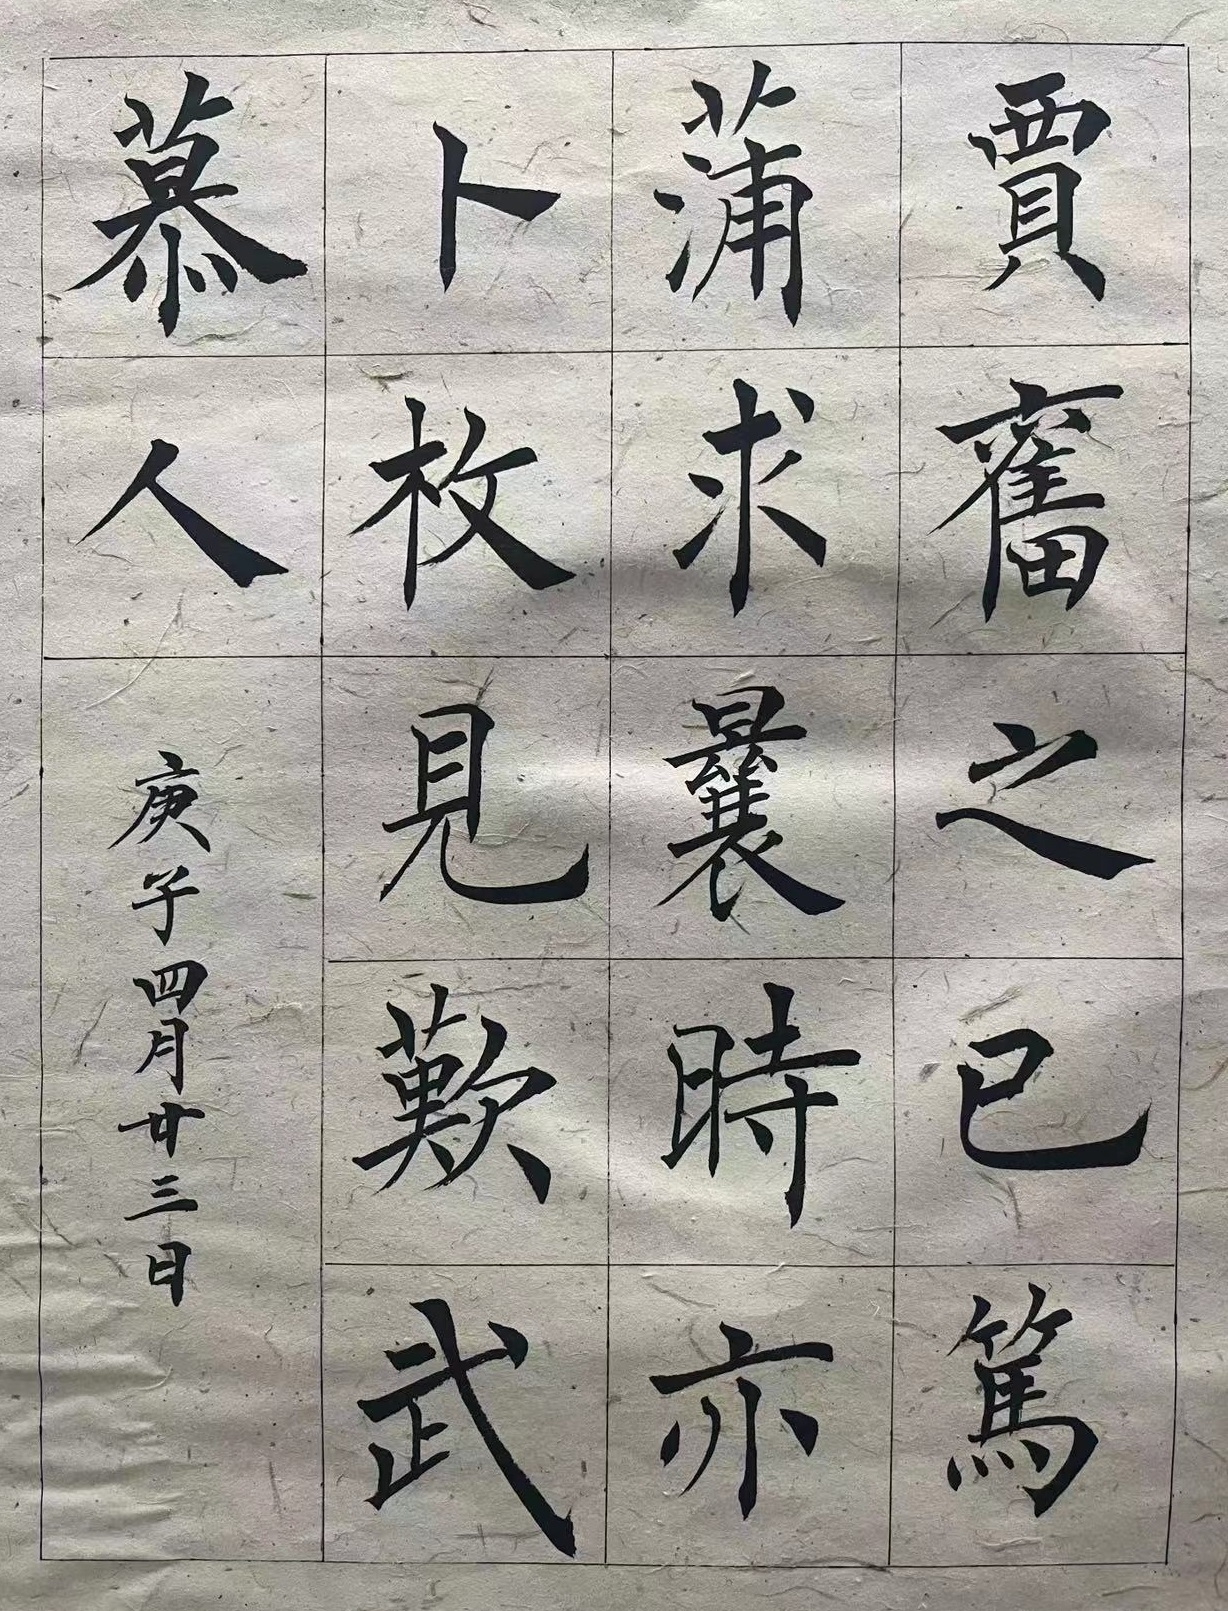 賈舊之已篤
蒲求曩時亦
卜枚見歎武
慕人
庚子四月廿三日